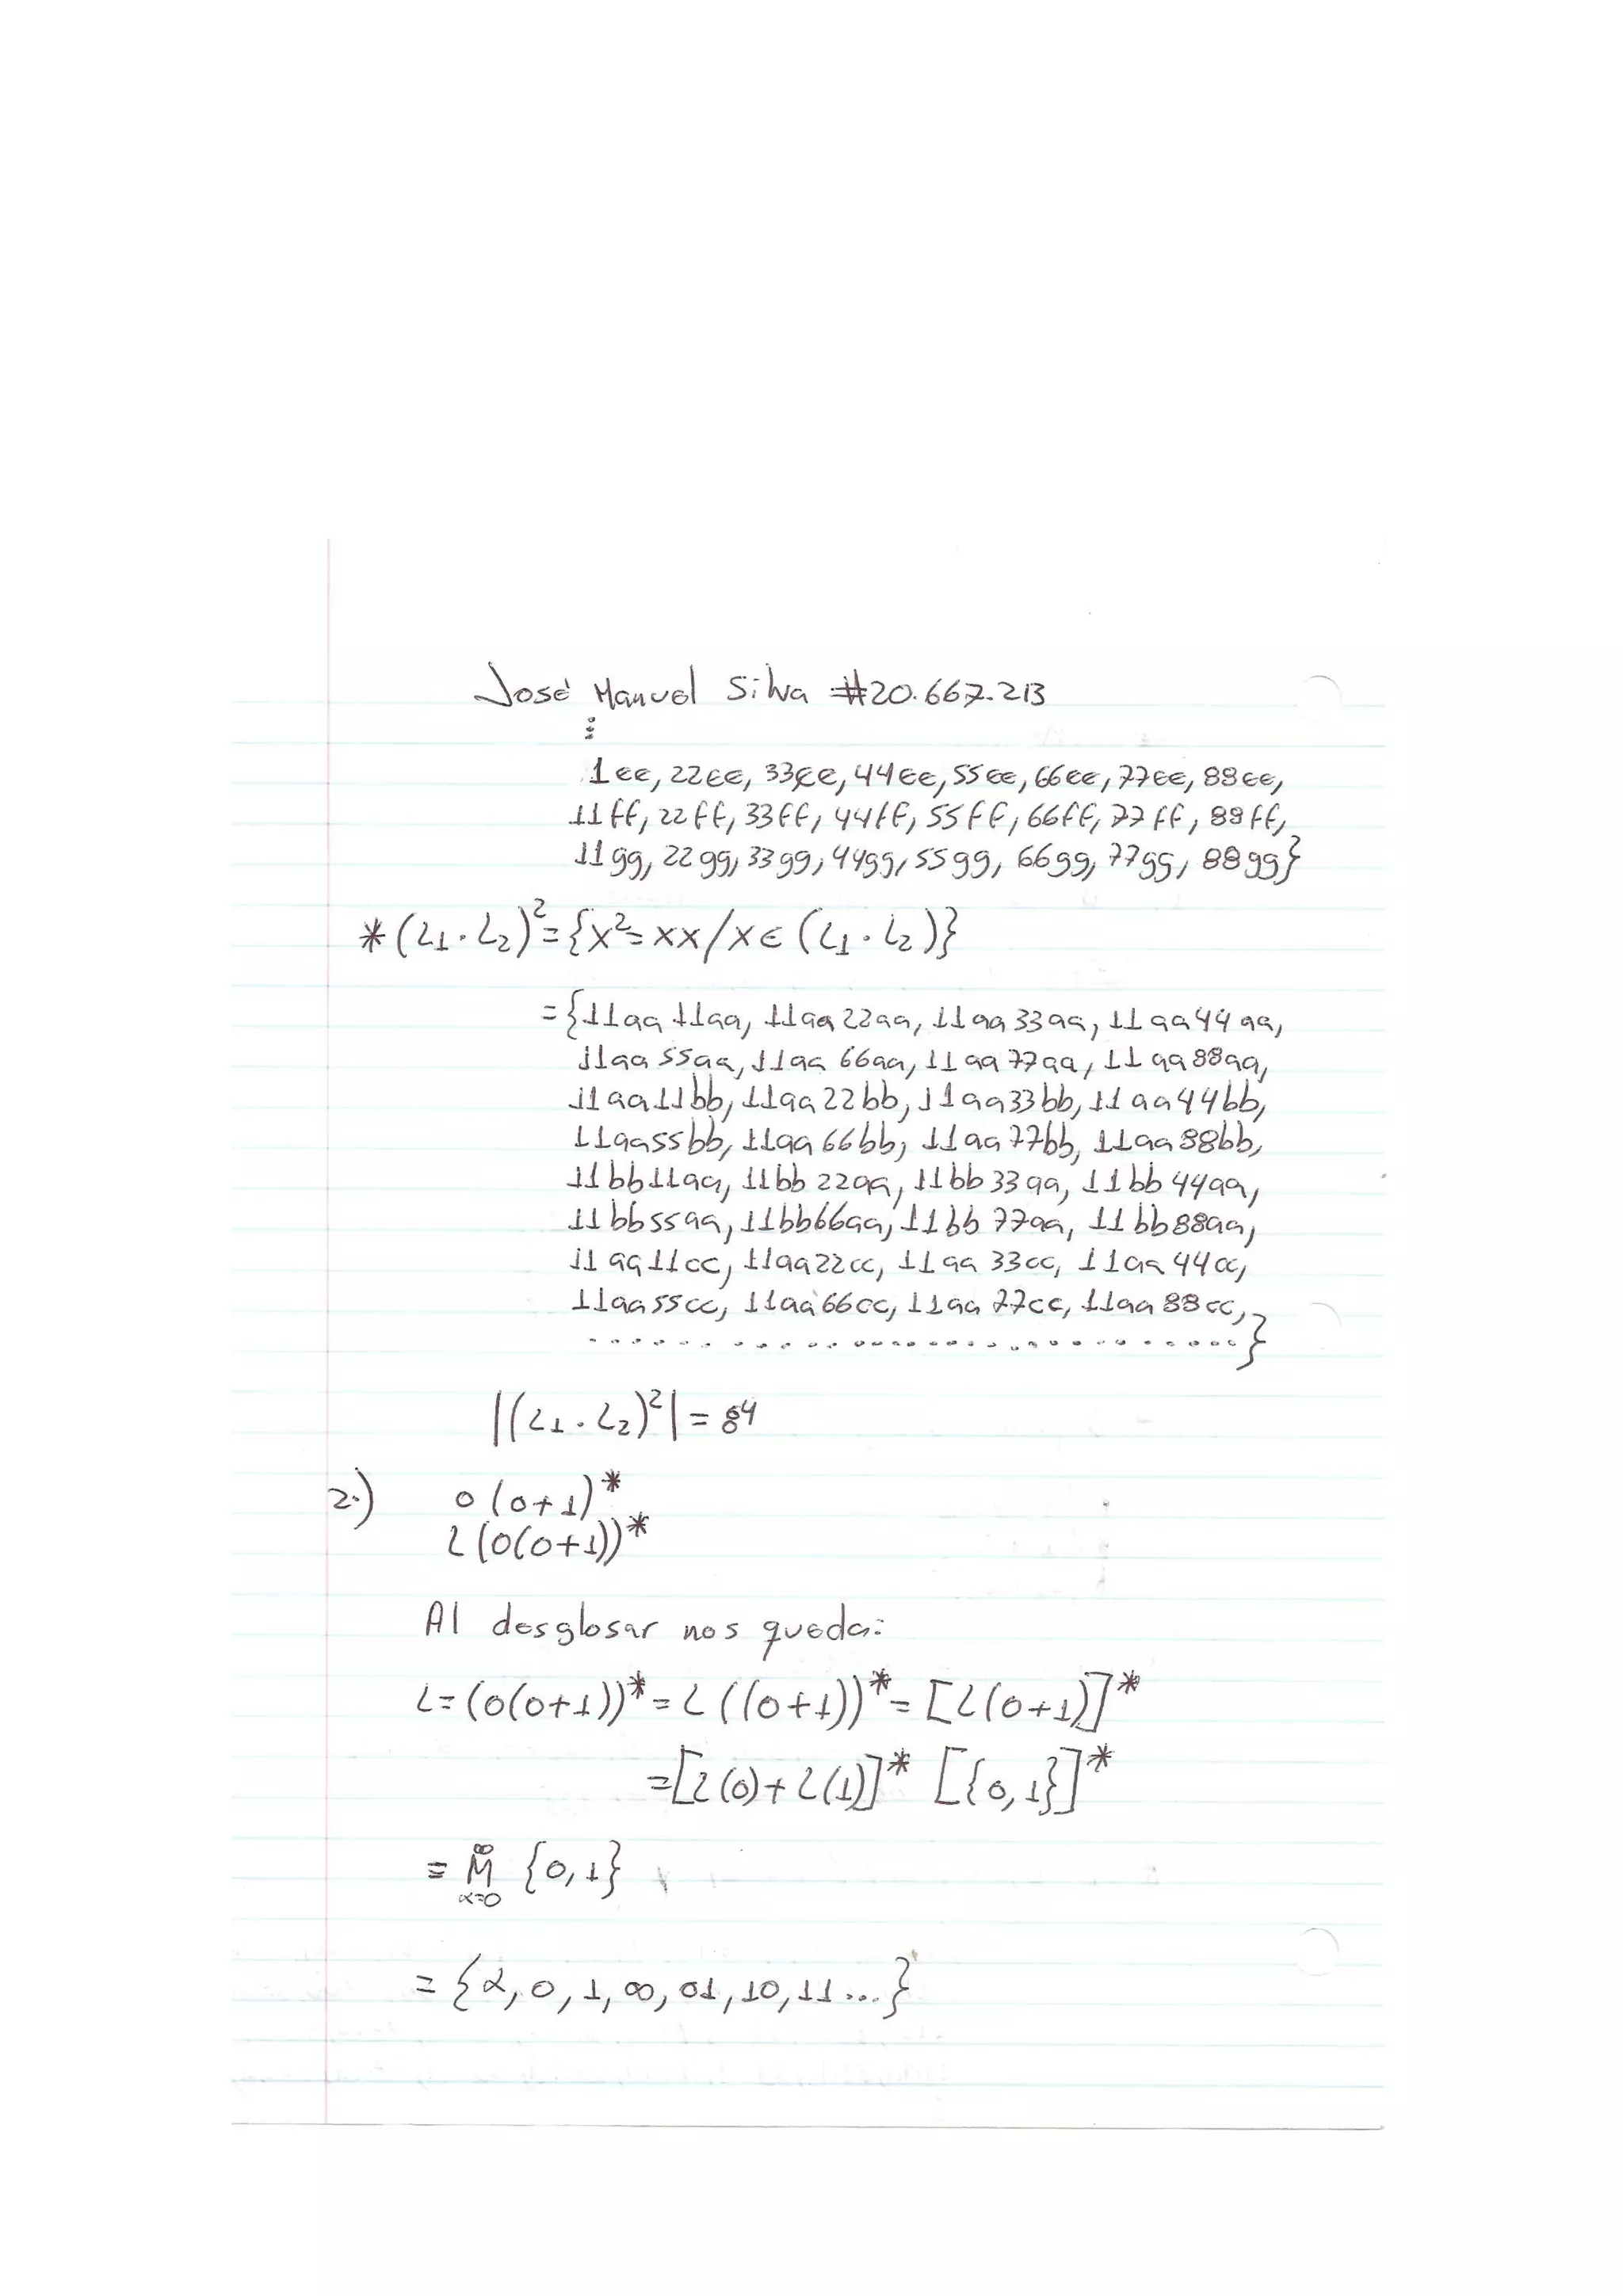 José Manuel Silva #20.667.213
⋮
1ee, 22ee, 33ee, 44ee, 55ee, 66ee, 77ee, 88ee,
11ff, 22ff, 33ff, 44ff, 55ff, 66ff, 77ff, 88ff,
11gg, 22gg, 33gg, 44gg, 55gg, 66gg, 77gg, 88gg}
* (L1 · L2)² = {x² = xx / x ∈ (L1 · L2)}
= {11aa 11aa, 11aa 22aa, 11aa 33aa, 11aa 44aa,
11aa 55aa, 11aa 66aa, 11aa 77aa, 11aa 88aa,
11aa 11bb, 11aa 22bb, 11aa 33bb, 11aa 44bb,
11aa 55bb, 11aa 66bb, 11aa 77bb, 11aa 88bb,
11bb 11aa, 11bb 22aa, 11bb 33aa, 11bb 44aa,
11bb 55aa, 11bb 66aa, 11bb 77aa, 11bb 88aa,
11aa 11cc, 11aa 22cc, 11aa 33cc, 11aa 44cc,
11aa 55cc, 11aa 66cc, 11aa 77cc, 11aa 88cc,
.....................................}
|(L1 · L2)²| = 84
2.) 0 (0+1)*
L (0(0+1))*
Al desglosar nos queda:
L = (0(0+1))* = L ((0+1))* = [L(0+1)]*
= [L(0) + L(1)]* [{0,1}]*
= M {0,1}
∞
α=0
= {α, 0, 1, 00, 01, 10, 11 ...}